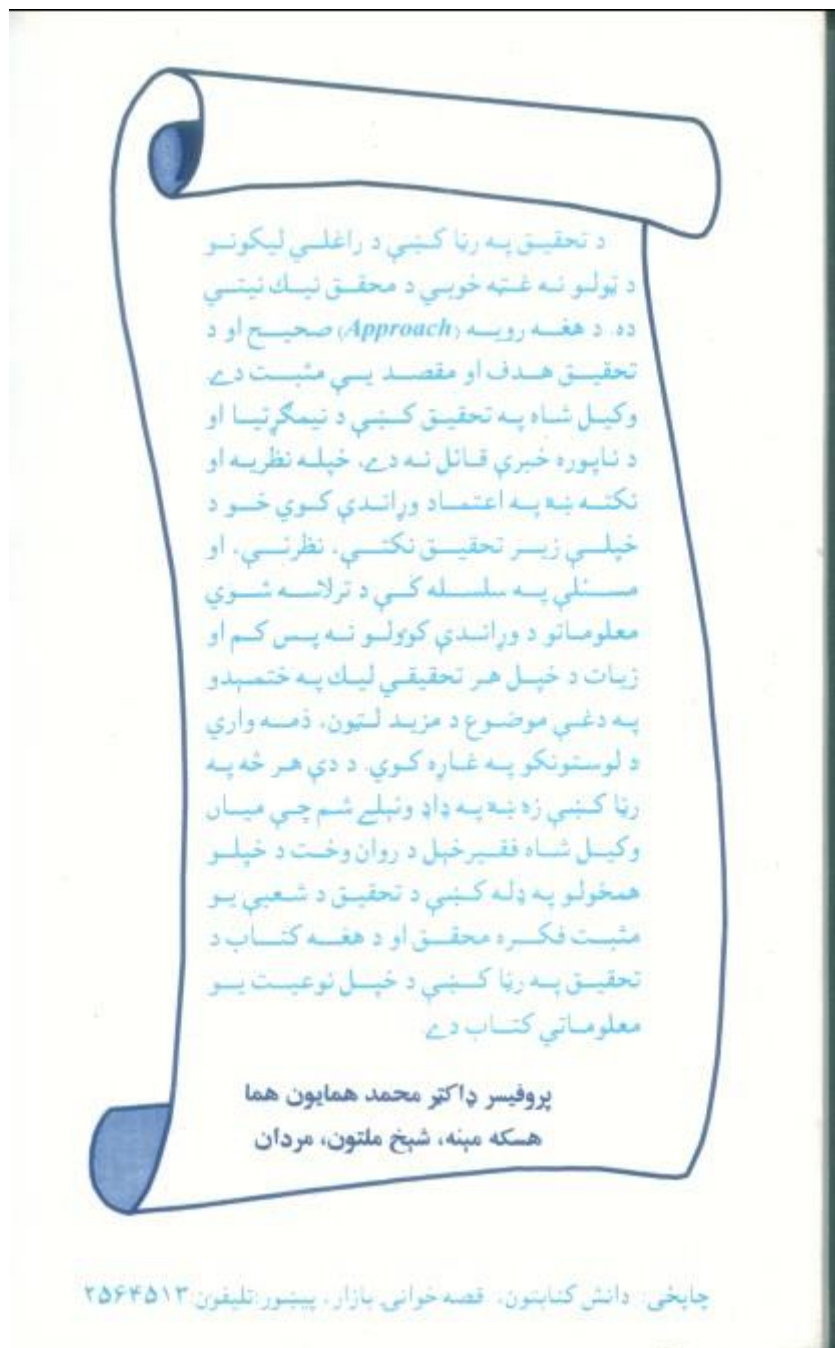 د تحقيق په رڼا کښې د راغلي ليکونو
د ټولو نه غټه خوبي د محقق نيك نيتي
ده. د هغه رويه (Approach) صحيح او د
تحقيق هدف او مقصد يې مثبت دے.
وکيل شاه په تحقيق کښې د نيمګړتيا او
د ناپوره خبرې قائل نه دے، خپله نظريه او
نکته ښه په اعتماد وړاندې کوي خو د
خپلې زير تحقيق نکتې، نظرئې، او
مسئلې په سلسله کې د ترلاسه شوي
معلوماتو د وړاندې کوولو نه پس کم او
زيات د خپل هر تحقيقي ليك په ختمېدو
په دغې موضوع د مزيد لټون، ذمه واري
د لوستونکو په غاړه کوي. د دې هر څه په
رڼا کښې زه ښه په ډاډ وئيلے شم چې ميان
وکيل شاه فقيرخېل د روان وخت د خپلو
همځولو په ډله کښې د تحقيق د شعبې يو
مثبت فکره محقق او د هغه کتاب د
تحقيق په رڼا کښې د خپل نوعيت يو
معلوماتي کتاب دے.
پروفيسر ډاکټر محمد همايون هما
هسکه مېنه، شېخ ملتون، مردان
چاپځی: دانش کتابتون، قصه خوانۍ بازار، پېښور:تليفون:۲۵۶۴۵۱۳